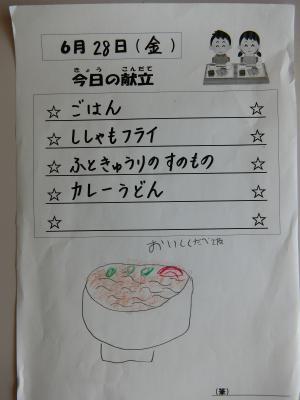 6月28日(金)
きょう こんだて
今日の献立
☆ ごはん ☆
☆ ししゃもフライ ☆
☆ ふときゅうりのすのもの ☆
☆ カレーうどん ☆
☆ ☆
(筆)